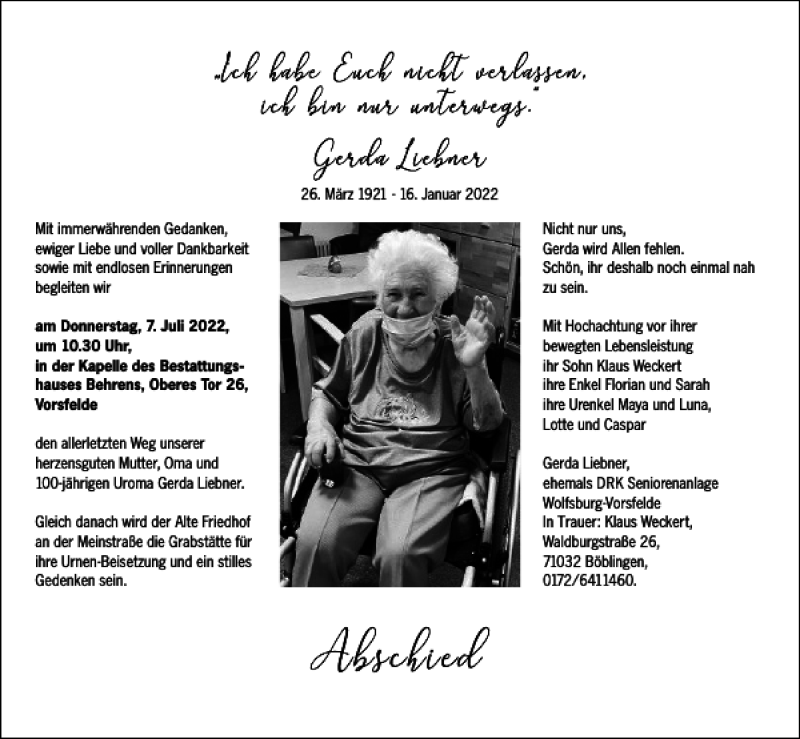 „Ich habe Euch nicht verlassen,
ich bin nur unterwegs.“
Gerda Liebner
26. März 1921 - 16. Januar 2022
Mit immerwährenden Gedanken,
ewiger Liebe und voller Dankbarkeit
sowie mit endlosen Erinnerungen
begleiten wir
am Donnerstag, 7. Juli 2022,
um 10.30 Uhr,
in der Kapelle des Bestattungs-
hauses Behrens, Oberes Tor 26,
Vorsfelde
den allerletzten Weg unserer
herzensguten Mutter, Oma und
100-jährigen Uroma Gerda Liebner.
Gleich danach wird der Alte Friedhof
an der Meinstraße die Grabstätte für
ihre Urnen-Beisetzung und ein stilles
Gedenken sein.
Nicht nur uns,
Gerda wird Allen fehlen.
Schön, ihr deshalb noch einmal nah
zu sein.
Mit Hochachtung vor ihrer
bewegten Lebensleistung
ihr Sohn Klaus Weckert
ihre Enkel Florian und Sarah
ihre Urenkel Maya und Luna,
Lotte und Caspar
Gerda Liebner,
ehemals DRK Seniorenanlage
Wolfsburg-Vorsfelde
In Trauer: Klaus Weckert,
Waldburgstraße 26,
71032 Böblingen,
0172/6411460.
Abschied